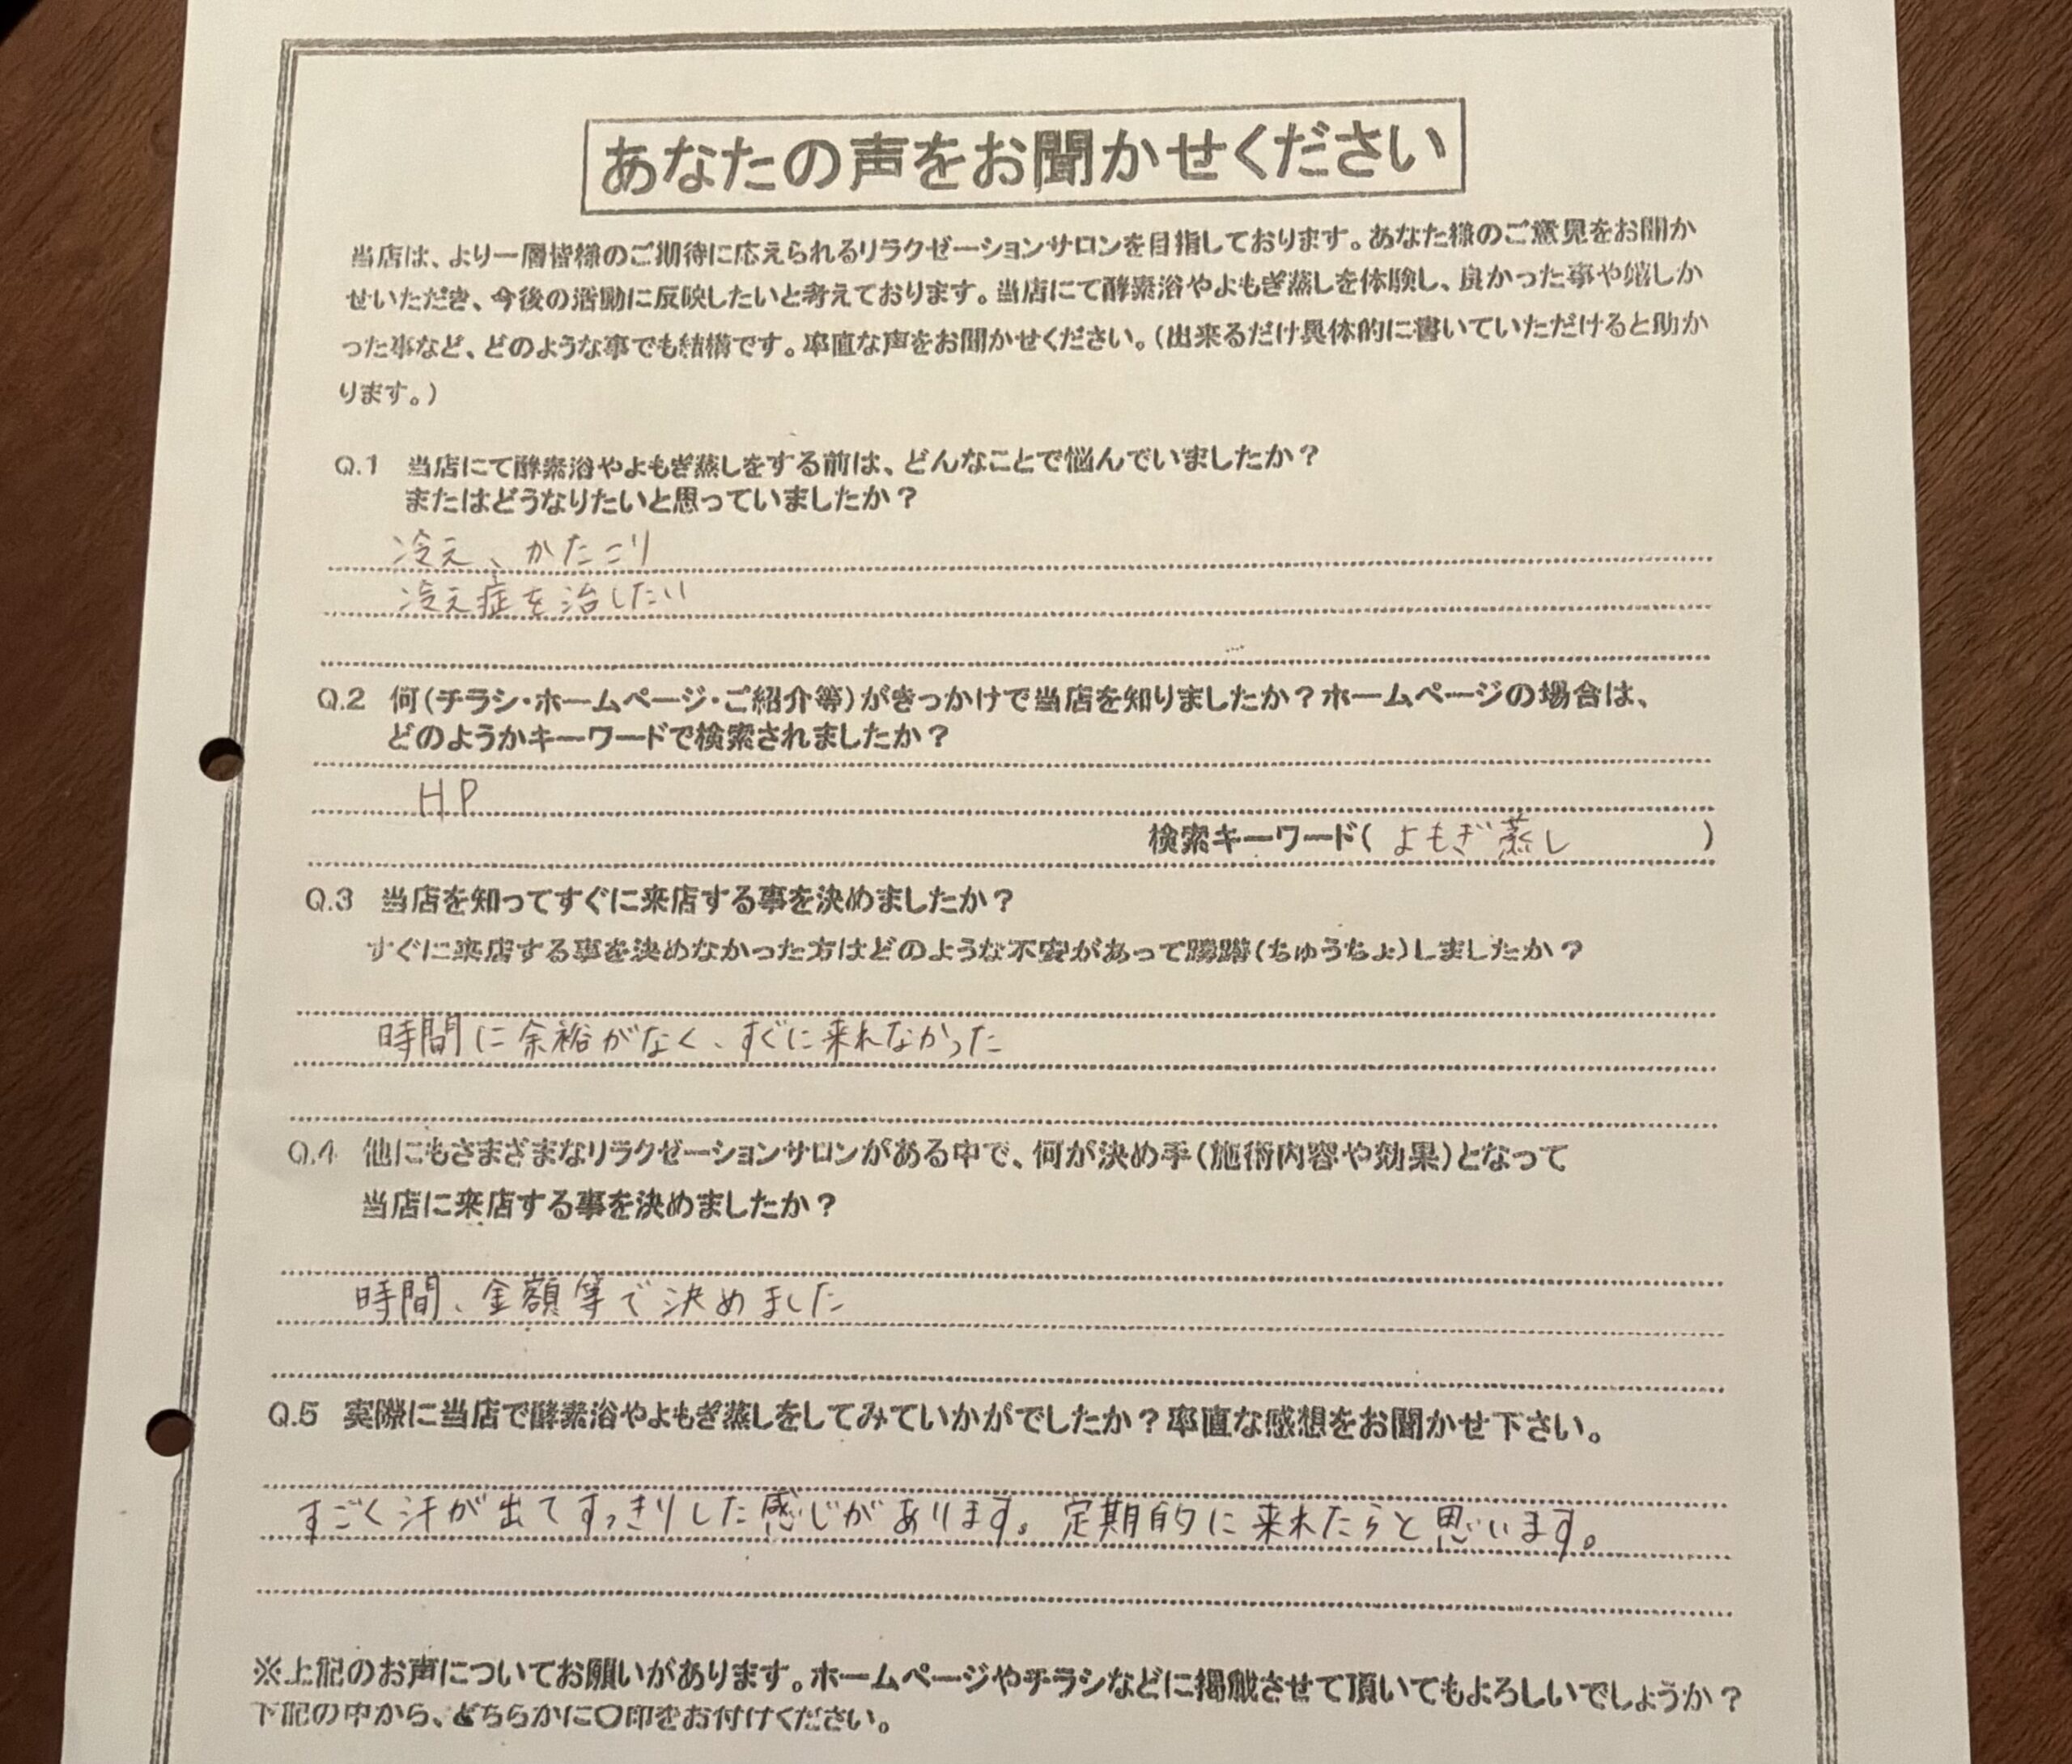 あなたの声をお聞かせください
当店は、より一層皆様のご期待に応えられるリラクゼーションサロンを目指しております。あなた様のご意見をお聞か
せいただき、今後の活動に反映したいと考えております。当店にて酵素浴やよもぎ蒸しを体験し、良かった事や嬉しか
った事など、どのような事でも結構です。率直な声をお聞かせください。(出来るだけ具体的に書いていただけると助か
ります。)
Q.1 当店にて酵素浴やよもぎ蒸しをする前は、どんなことで悩んでいましたか?
またはどうなりたいと思っていましたか?
冷え、かたこり
冷え症を治したい
Q.2 何(チラシ・ホームページ・ご紹介等)がきっかけで当店を知りましたか?ホームページの場合は、
どのようかキーワードで検索されましたか?
HP
検索キーワード( よもぎ蒸し )
Q.3 当店を知ってすぐに来店する事を決めましたか?
すぐに来店する事を決めなかった方はどのような不安があって躊躇(ちゅうちょ)しましたか?
時間に余裕がなく、すぐに来れなかった
Q.4 他にもさまざまなリラクゼーションサロンがある中で、何が決め手(施術内容や効果)となって
当店に来店する事を決めましたか?
時間、金額等で決めました
Q.5 実際に当店で酵素浴やよもぎ蒸しをしてみていかがでしたか?率直な感想をお聞かせ下さい。
すごく汗が出てすっきりした感じがあります。定期的に来れたらと思います。
※上記のお声についてお願いがあります。ホームページやチラシなどに掲載させて頂いてもよろしいでしょうか?
下記の中から、どちらかに〇印をお付けください。